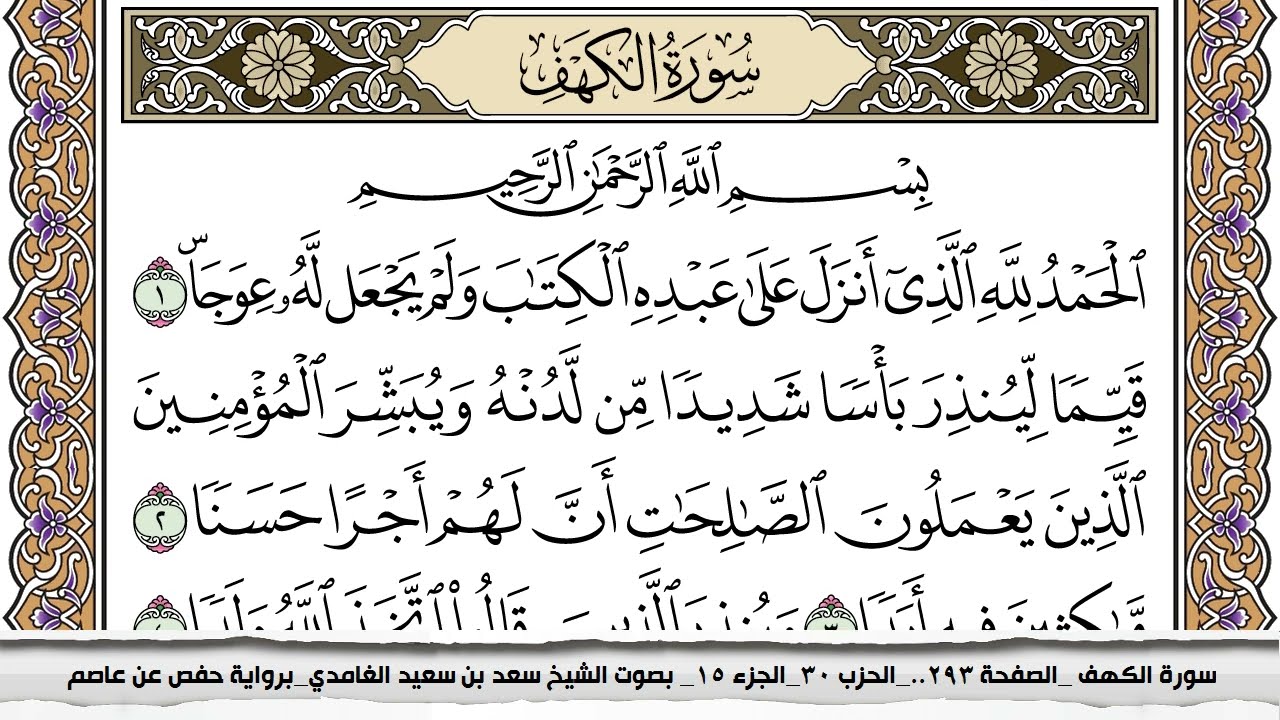 سُورَةُ الكَهۡفِ
بِسۡمِ ٱللَّهِ ٱلرَّحۡمَٰنِ ٱلرَّحِيمِ
ٱلۡحَمۡدُ لِلَّهِ ٱلَّذِيٓ أَنزَلَ عَلَىٰ عَبۡدِهِ ٱلۡكِتَٰبَ وَلَمۡ يَجۡعَل لَّهُۥ عِوَجَاۜ ١
قَيِّمٗا لِّيُنذِرَ بَأۡسٗا شَدِيدٗا مِّن لَّدُنۡهُ وَيُبَشِّرَ ٱلۡمُؤۡمِنِينَ
ٱلَّذِينَ يَعۡمَلُونَ ٱلصَّٰلِحَٰتِ أَنَّ لَهُمۡ أَجۡرًا حَسَنٗا ٢
مَّٰكِثِينَ فِيهِ أَبَدٗا ٣ وَيُنذِرَ ٱلَّذِينَ قَالُواْ ٱتَّخَذَ ٱللَّهُ وَلَدٗا ٤
سورة الكهف _الصفحة ٢٩٣.._الحزب ٣٠_الجزء ١٥_ بصوت الشيخ سعد بن سعيد الغامدي_برواية حفص عن عاصم